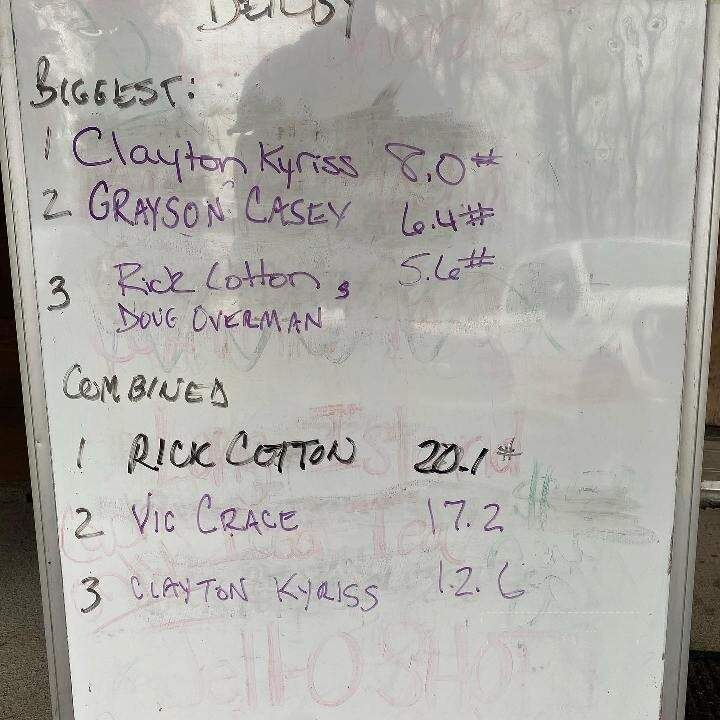 DERBY
BIGGEST:
1 Clayton Kyriss 8.0#
2 GRAYSON CASEY 6.4#
3 Rick Cotton & 5.6#
DOUG OVERMAN
COMBINED
1 RICK COTTON 20.1#
2 VIC CRACE 17.2
3 CLAYTON KYRISS 12.6
Jell-O SHOT